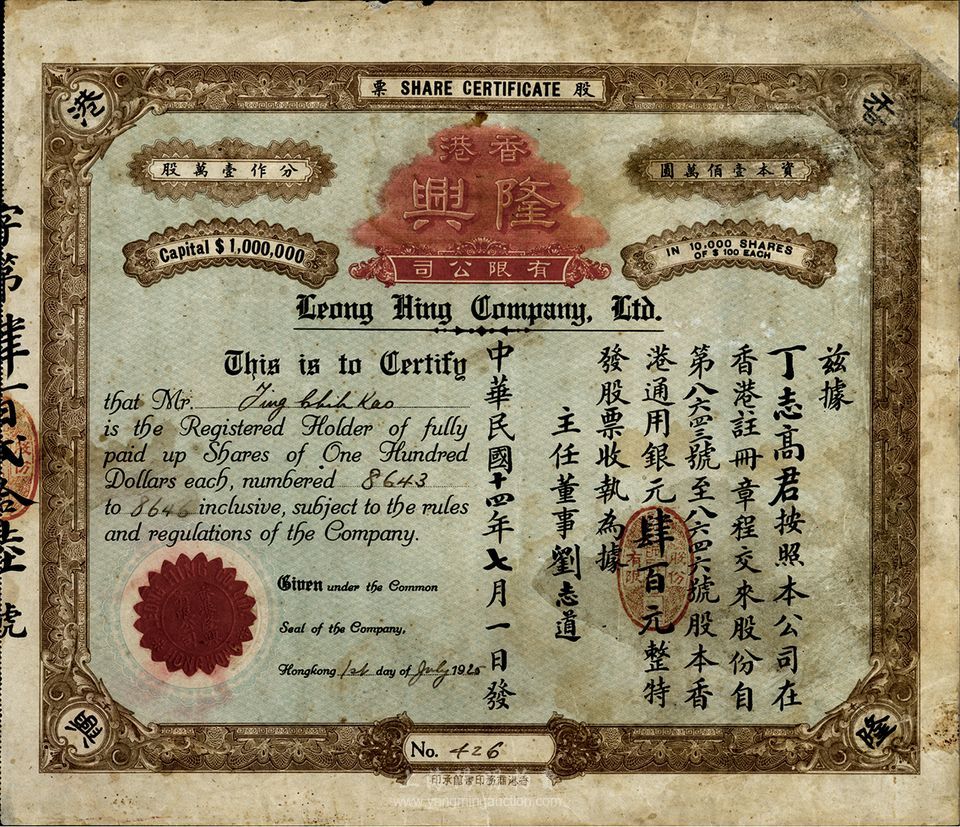 股 SHARE CERTIFICATE 票
香
港
資本壹佰萬圓
分作壹萬股
香港
隆興
有限公司
Capital $1,000,000
IN 10,000 SHARES
OF $100 EACH
Leong Hing Company, Ltd.
This is to Certify
that Mr. Ting Chih Kao
is the Registered Holder of fully
paid up Shares of One Hundred
Dollars each, numbered 8643
to 8646 inclusive, subject to the rules
and regulations of the Company.
Given under the Common
Seal of the Company,
Hongkong 1st day of July 1925
茲據
丁志高君按照本公司在
香港註冊章程交來股份自
第八六四三號至八六四六號股本香
港通用銀元肆百元整特
發股票收執為據
主任董事劉志道
中華民國十四年七月一日發
字第肆百貳拾陸號
隆
興
No. 426
香港商務印書館承印
www.yangmingauction.com